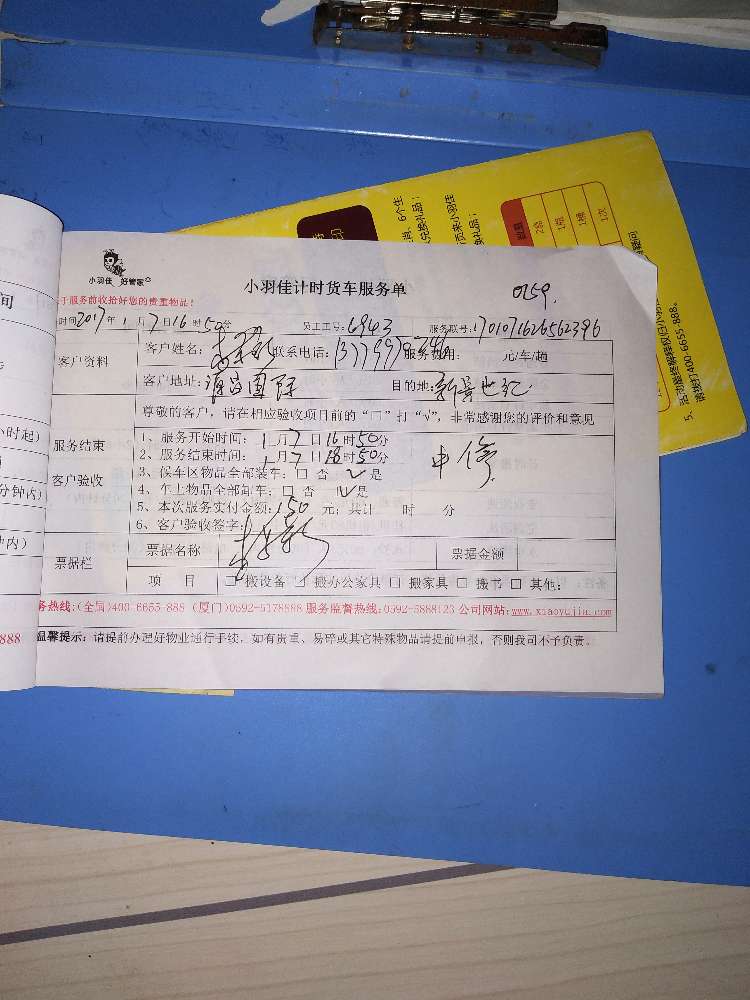 小羽佳 好管家
小羽佳计时货车服务单
0259.
于服务前收拾好您的贵重物品！
时间2017年1月7日16时50分 员工工号:6943 服务联号:1701071626562396
客户资料
客户姓名: 联系电话: 服务费用: 元/车/趟
客户地址: 国际 目的地:新景世纪
尊敬的客户，请在相应验收项目前的“□”打“√”，非常感谢您的评价和意见
服务结束
客户验收
1、服务开始时间: 1月7日16时50分
2、服务结束时间: 1月7日18时50分
3、候车区物品全部装车: □ 否 √ 是
4、车上物品全部卸车: □ 否 √ 是
5、本次服务实付金额:150元；共计 时 分
6、客户验收签字:
票据栏
票据名称 票据金额
项 目 □ 搬设备 □ 搬办公家具 □ 搬家具 □ 搬书 □ 其他:
务热线:(全国)400-6655-888 (厦门)0592-5178888 服务监督热线:0592-5888123 公司网站:www.xiaoyujia.com
温馨提示: 请提前办理好物业通行手续，如有贵重、易碎或其它特殊物品请提前申报，否则我司不予负责。
间
小时起）
分钟内）
钟内）
888
数量
2袋
1桶
1桶
1次
请拨打400-6655-888。